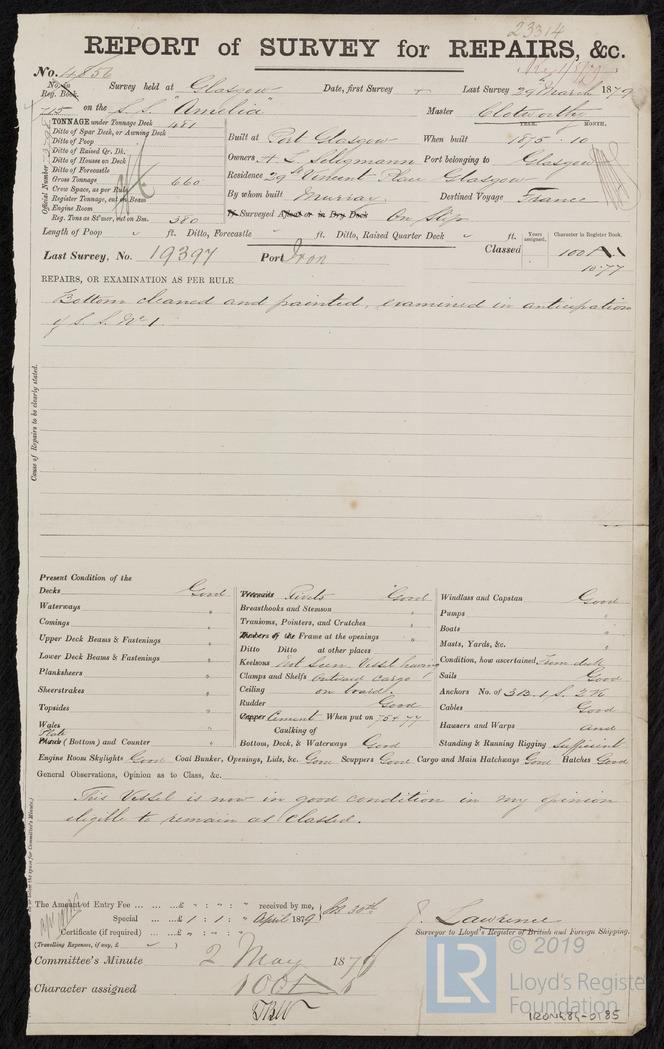 23314
REPORT of SURVEY for REPAIRS, &c.
No. 4856
No. in Reg. Book. Survey held at Glasgow Date, first Survey Last Survey 29 March 1879
715 on the S.S. "Amelia" Master Clatworthy
TONNAGE under Tonnage Deck 481
Ditto of Spar Deck, or Awning Deck
Ditto of Poop
Ditto of Raised Qr. Dk.
Ditto of Houses on Deck
Ditto of Forecastle
Gross Tonnage 660
Crew Space, as per Rule
Register Tonnage, cut on Beam
Engine Room
Reg. Tons as St'mer, cut on Bm. 380
Official Number
YEAR. MONTH.
Built at Port Glasgow When built 1875 10
Owners A. L. Seligmann Port belonging to Glasgow
Residence 29 St Vincent Place Glasgow
By whom built Murray Destined Voyage France
If Surveyed Afloat or in Dry Dock On Slip
Length of Poop " ft. Ditto, Forecastle " ft. Ditto, Raised Quarter Deck " ft.
Years assigned. Character in Register Book.
Last Survey, No. 19397 Port Iron Classed 100 A 1
10.77
REPAIRS, OR EXAMINATION AS PER RULE
Bottom cleaned and painted, examined in anticipation
of S. S. No 1.
Cause of Repairs to be clearly stated.
Present Condition of the
Decks Good
Waterways "
Comings "
Upper Deck Beams & Fastenings "
Lower Deck Beams & Fastenings "
Planksheers "
Sheerstrakes "
Topsides "
Wales "
Plate
Planks (Bottom) and Counter "
Treenails Rivets Good
Breasthooks and Stemson "
Transoms, Pointers, and Crutches "
Timbers of the Frame at the openings "
Ditto Ditto at other places
Keelsons Not Seen Vessel having
Clamps and Shelfs Outward cargo
Ceiling on board.
Rudder Good
Copper Cement When put on 75 & 77
Caulking of
Bottom, Deck, & Waterways Good
Windlass and Capstan Good
Pumps "
Boats "
Masts, Yards, &c. "
Condition, how ascertained From deck
Sails Good
Anchors No. of 3 B. 1 S. 2 K
Cables Good
Hausers and Warps and
Standing & Running Rigging Sufficient
Engine Room Skylights Good Coal Bunker, Openings, Lids, &c. Good Scuppers Good Cargo and Main Hatchways Good Hatches Good
General Observations, Opinion as to Class, &c.
This Vessel is now in good condition in my opinion
eligible to remain as Classed.
The Amount of Entry Fee ... ... ...£ " : " : " received by me,
Special ... ...£ 1 : 1 : " April 1879
Certificate (if required) ... ...£ " : " : "
(Travelling Expenses, if any, £ )
J. Lawrence
Surveyor to Lloyd's Register of British and Foreign Shipping.
Committee's Minute 2 May 1879
Character assigned 100 A 1
© 2019
LR
Lloyd's Register
Foundation
IRON484-0185